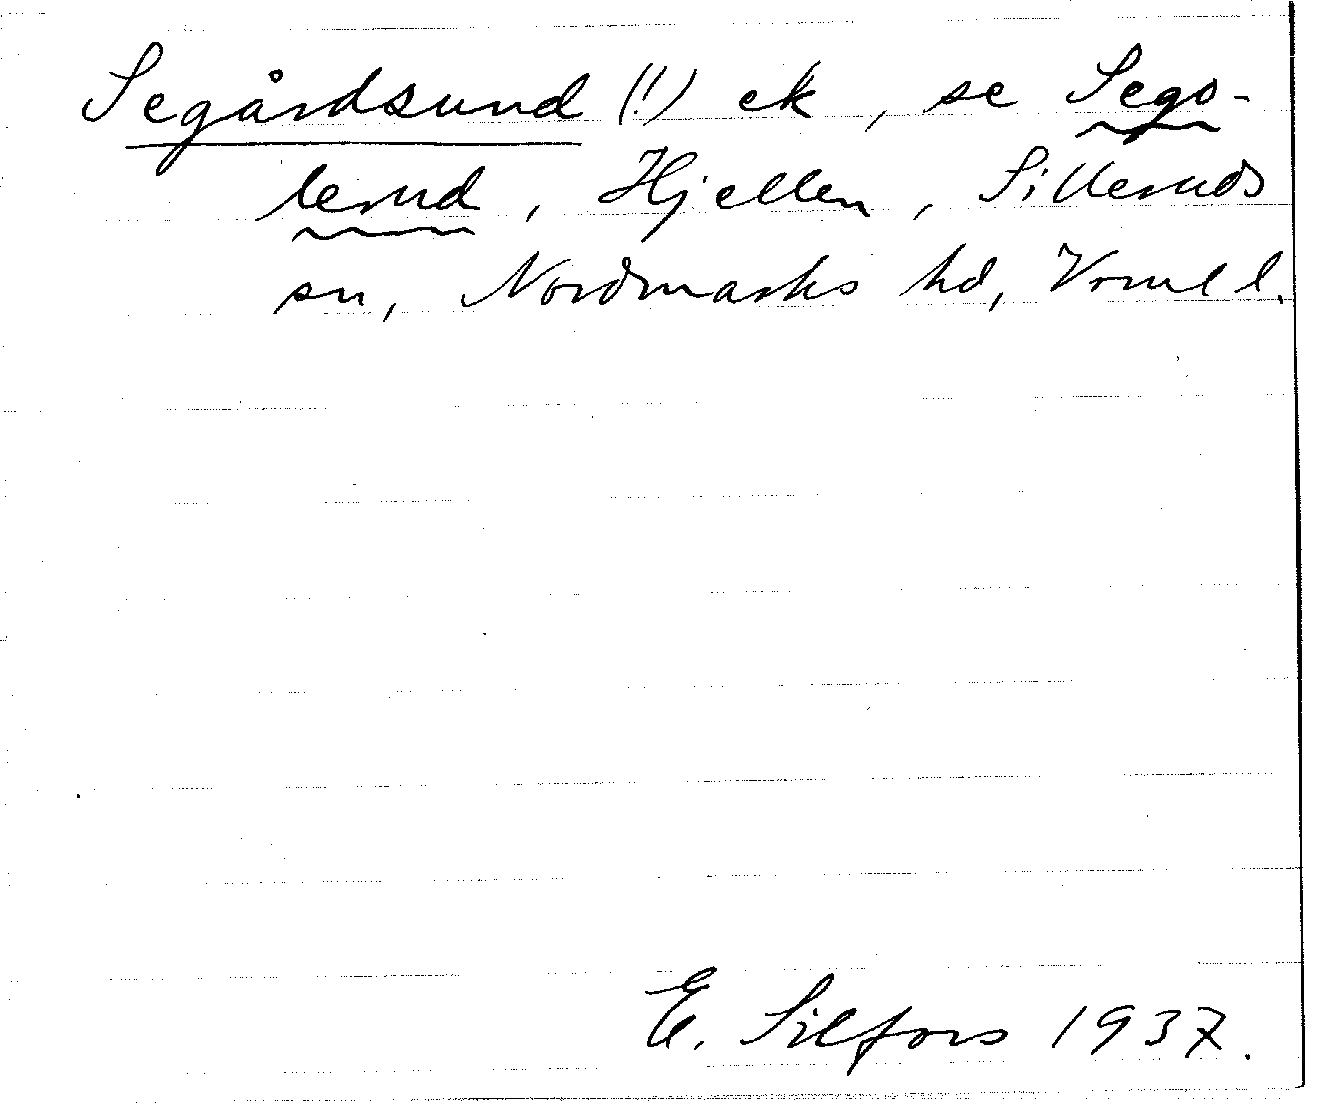 Segårdsund (!) ek, se Sego-
lerud, Hjellen, Silleruds
sn, Nordmarks hd, Vrml l.
E. Silfors 1937.